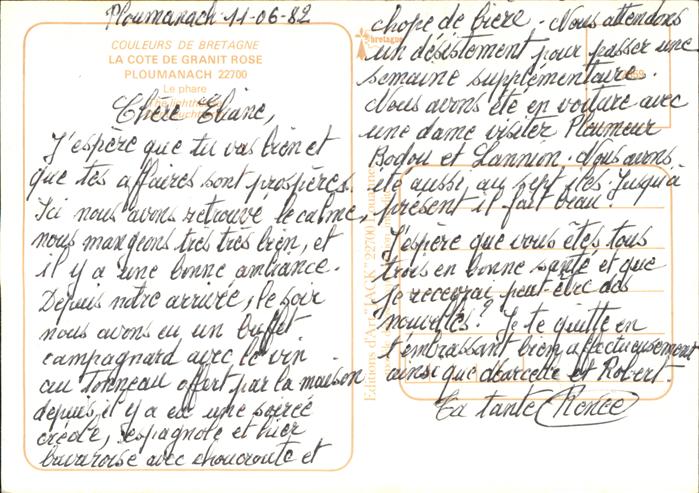 Ploumanach 11-06-82
COULEURS DE BRETAGNE
LA COTE DE GRANIT ROSE
PLOUMANACH 22700
Le phare
Chère Eliane,
J'espère que tu vas bien et
que tes affaires sont prospères.
Ici nous avons retrouvé le calme,
nous mangeons très très bien, et
il y a une bonne ambiance.
Depuis notre arrivée, le soir
nous avons eu un buffet
campagnard avec le vin
au tonneau offert par la maison
depuis, il y a eu une soirée
créole, espagnole et hier
bavaroise avec choucroute et
chope de bière. Nous attendons
un désistement pour passer une
semaine supplémentaire.
Nous avons été en voiture avec
une dame visiter Pleumeur
Bodou et Lannion. Nous avons
été aussi au sept iles. Jusqu'à
présent il fait beau.
J'espère que vous êtes tous
trois en bonne santé et que
je recevrai peut-être des
nouvelles? Je te quitte en
t'embrassant bien affectueusement
ainsi que Marcelle et Robert.
Ta tante Renée
bretagne
Editions d'Art "JACK" 22700